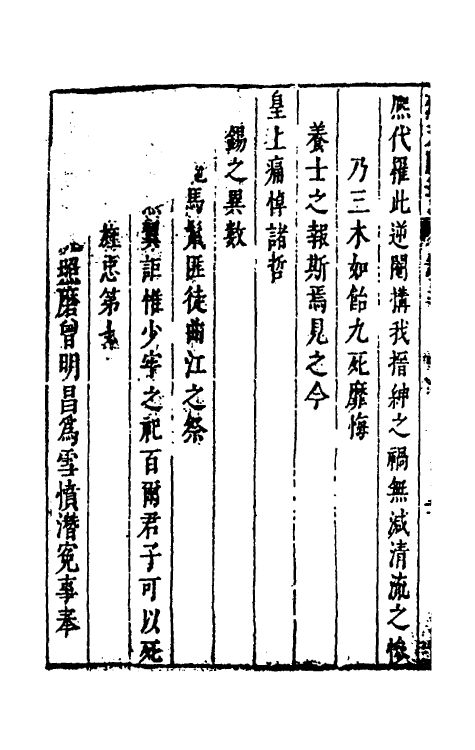 熈代罹此逆閹搆我搢紳之禍無減清流之慘
乃三木如飴九死靡悔
養士之報斯焉見之今
皇上痛悼諸哲
錫之異數
馬鬛匪徒曲江之祭
巽詎惟少宰之祀百爾君子可以死
旌忠第
照磨曾明昌爲雪憤濳寃事奉